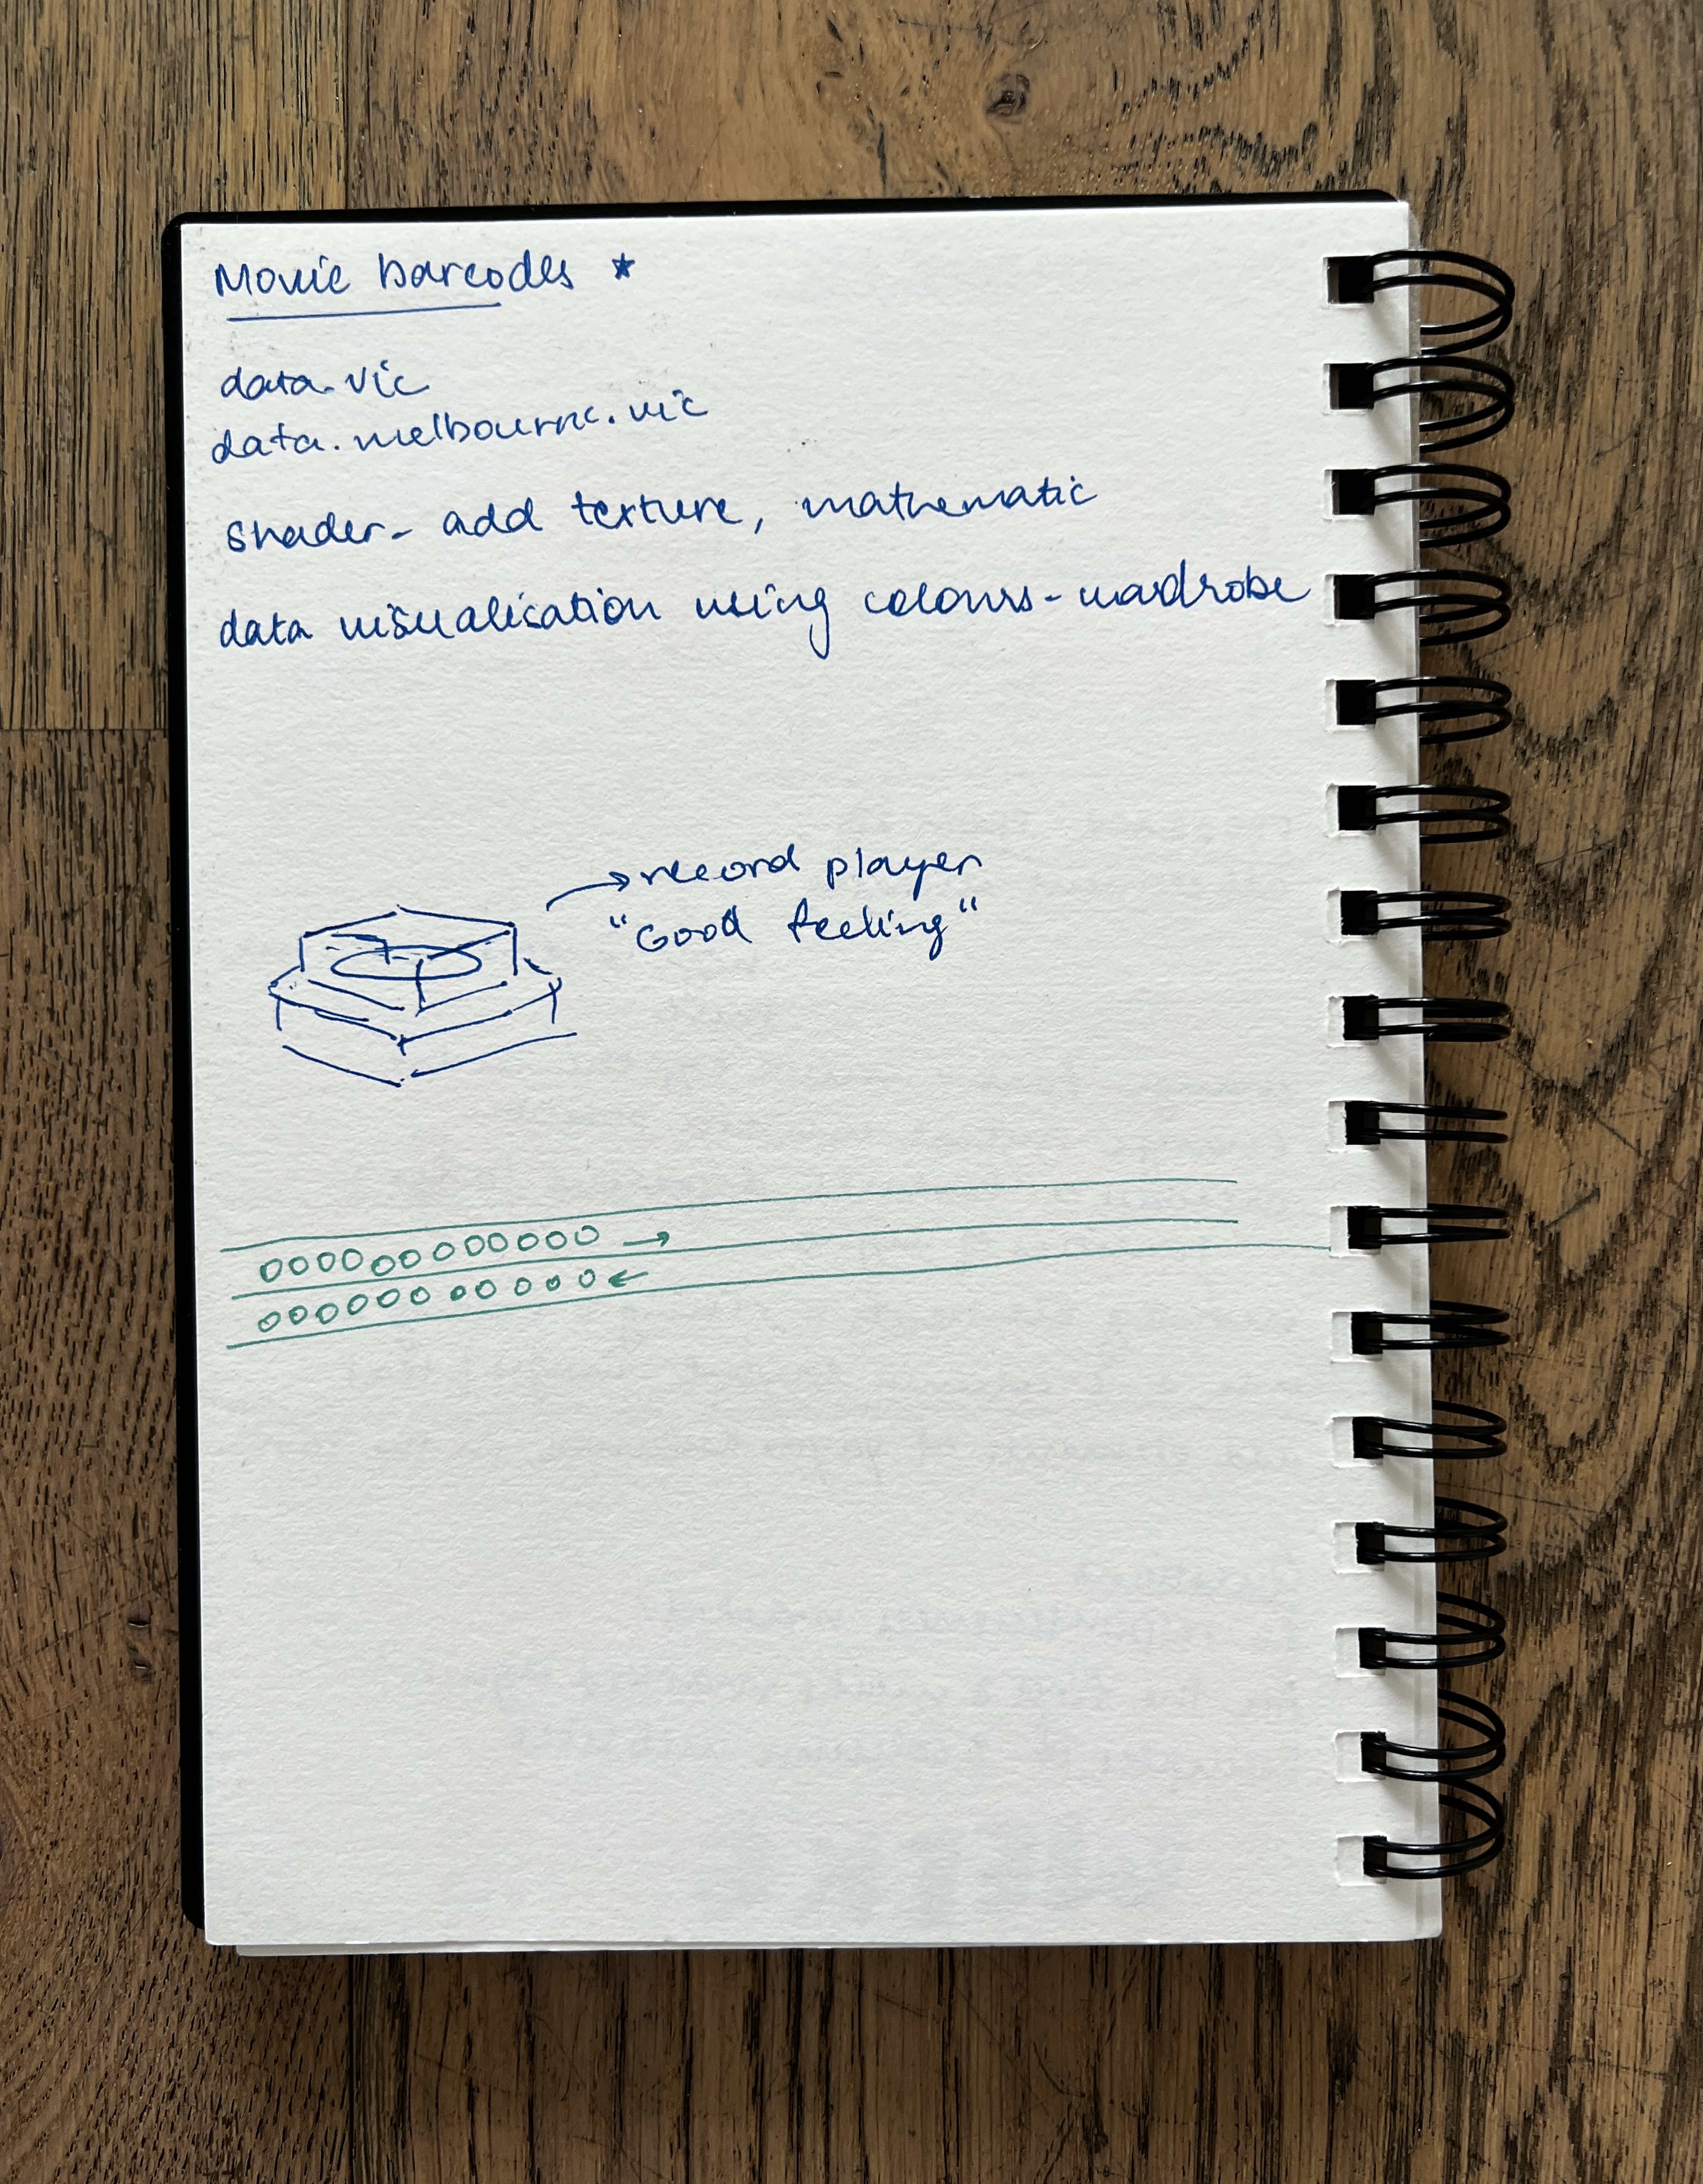 Movie barcodes ★
data.vic
data.melbourne.vic
shader - add texture, mathematic
data visualisation using colours - wardrobe
→ record player
"Good feeling"